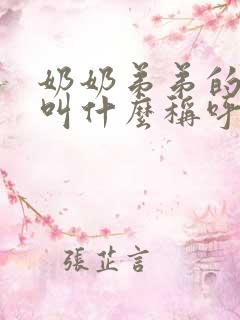 奶奶弟弟的
叫什麼稱呼
張芷言